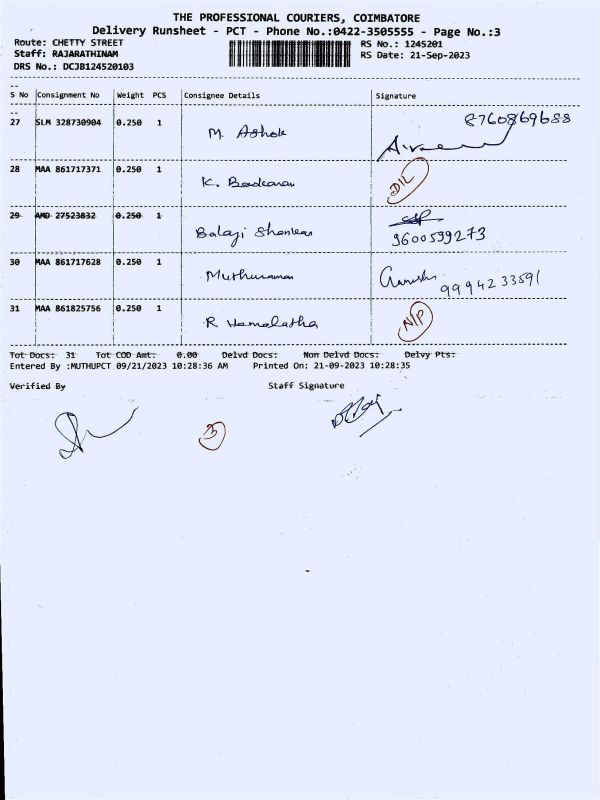 THE PROFESSIONAL COURIERS, COIMBATORE
Delivery Runsheet - PCT - Phone No.:0422-3505555 - Page No.:3
Route: CHETTY STREET
RS No.: 1245201
Staff: RAJARATHINAM
RS Date: 21-Sep-2023
DRS No.: DCJB124520103
S No Consignment No Weight PCS Consignee Details Signature
27 SLM 328730904 0.250 1 M. Ashok 8760869688
28 MAA 861717371 0.250 1 K. D/L
29 AMD 27523832 0.250 1 Balaji Shankar 9600599273
30 MAA 861717628 0.250 1 Muthuraman 9994233591
31 MAA 861825756 0.250 1 R Hemalatha N/P
Tot Docs: 31 Tot COD Amt: 0.00 Delvd Docs: Non Delvd Docs: Delvy Pts:
Entered By :MUTHUPCT 09/21/2023 10:28:36 AM Printed On: 21-09-2023 10:28:35
Verified By Staff Signature
3